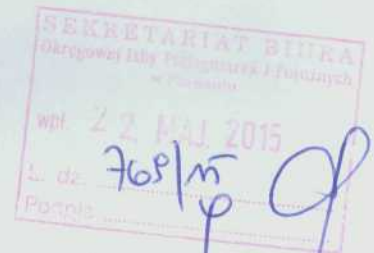 SEKRETARIAT BIURA
Okręgowej Izby Pielęgniarek i Położnych
w
wpł. 22 MAJ 2015
L. dz.
Podpis